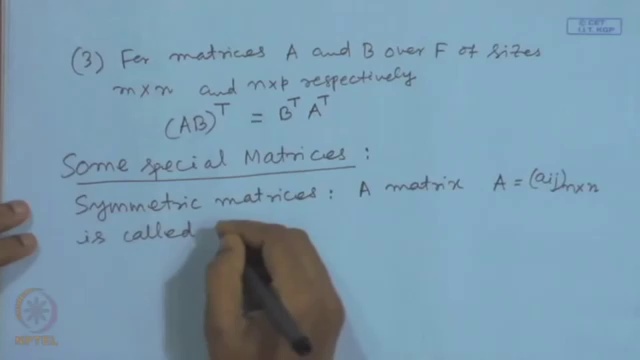 © CET
I.I.T. KGP
(3) For matrices A and B over F of sizes
m×n and n×p respectively
(AB)^T = B^T A^T
Some special Matrices :
Symmetric matrices : A matrix A = (aij)n×n
is called
NPTEL